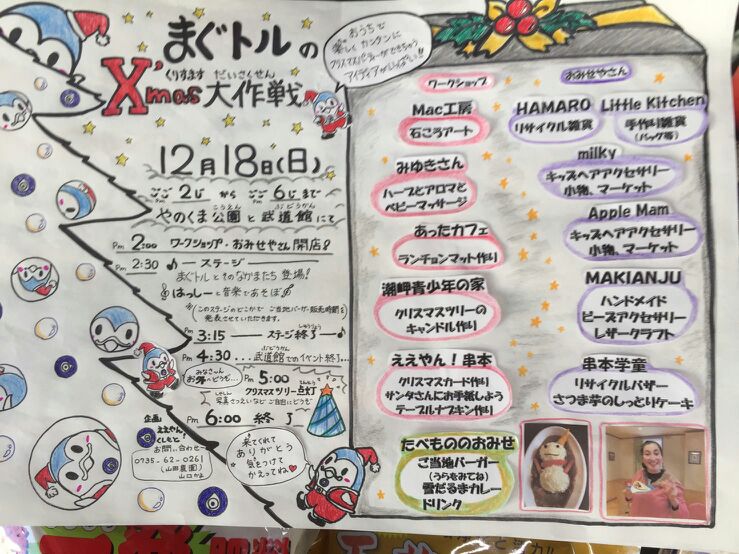 まぐトルの
X'mas大作戦
くりすます だいさくせん
おうちで
楽しくカンタンに
クリスマスパーティーができちゃう
アイディアがいっぱい!!
12月18日(日)
ごご2じ から ごご6じまで
やのくま公園と武道館にて
こうえん ぶどうかん
Pm 2:00 ワークショップ・おみせやさん開店!
Pm 2:30 ♪―ステージ
まぐトルとそのなかまたち登場!
はっしーと音楽であそぼ
(このステージのどこかで ご当地バーガー販売時間を
発表させていただきます。
Pm 3:15 ――ステージ終了―♪
Pm 4:30 ...武道館でのイベント終了...
みなさん
お外へどうぞ...
Pm 5:00
クリスマスツリー点灯
写真さつえいなど ご自由にどうぞ
Pm 6:00 終了
企画
ええやん
くしもと!
お問い合わせ
0735-62-0261
(山田農園)
山口
来てくれて
ありがとう
気をつけて
かえってね♥
ワークショップ
Mac工房
石ころアート
みゆきさん
ハーブとアロマと
ベビーマッサージ
あったカフェ
ランチョンマット作り
潮岬青少年の家
クリスマスツリーの
キャンドル作り
ええやん!串本
クリスマスカード作り
サンタさんにお手紙しよう
テーブルナプキン作り
たべもののおみせ
ご当地バーガー
(うらもみてね)
雪だるまカレー
ドリンク
おみせやさん
HAMARO
リサイクル雑貨
Little Kitchen
手作り雑貨
(バッグ等)
milky
キッズヘアアクセサリー
小物、マーケット
Apple Mam
キッズヘアアクセサリー
小物、マーケット
MAKIANJU
ハンドメイド
ビーズアクセサリー
レザークラフト
串本学童
リサイクルバザー
さつま芋のしっとりケーキ